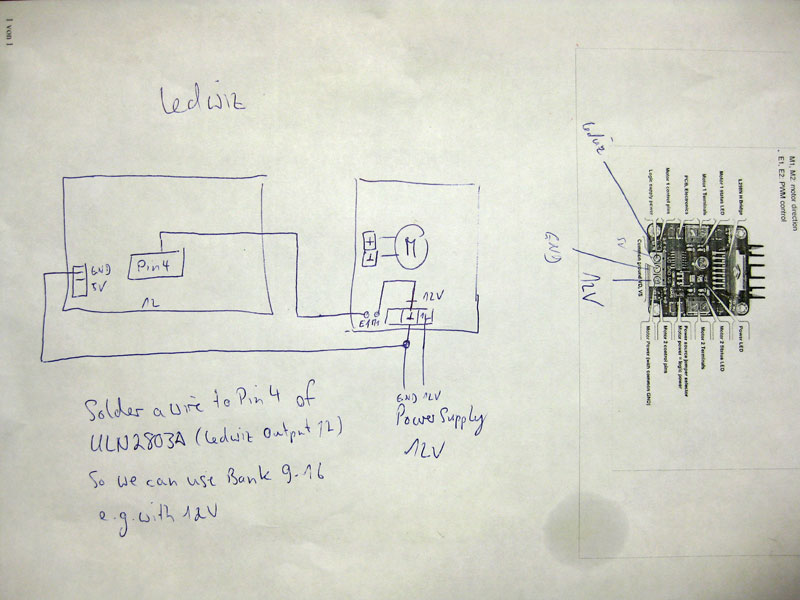 1 von 1
Ledwiz
Pin 4
GND
5V
12
M
+
12V
E1 M1
GND 12V
Power Supply
12V
Solder a wire to Pin 4 of
ULN2803A (Ledwiz Output 12)
So we can use Bank 9-16
e.g. with 12V
Ledwiz
GND
12V
5V
M1, M2: motor direction
E1, E2: PWM control
L298N H Bridge
Motor 1 status LED
Motor 1 Terminals
PCB, Electronics
Motor 1 control pins
Logic supply power
Common ground VD, VS
Power LED
Motor 2 Status LED
Motor 2 Terminals
Power source jumper selector
Motor power = logic power
Motor 2 control pins
Motor Power (with common GND)